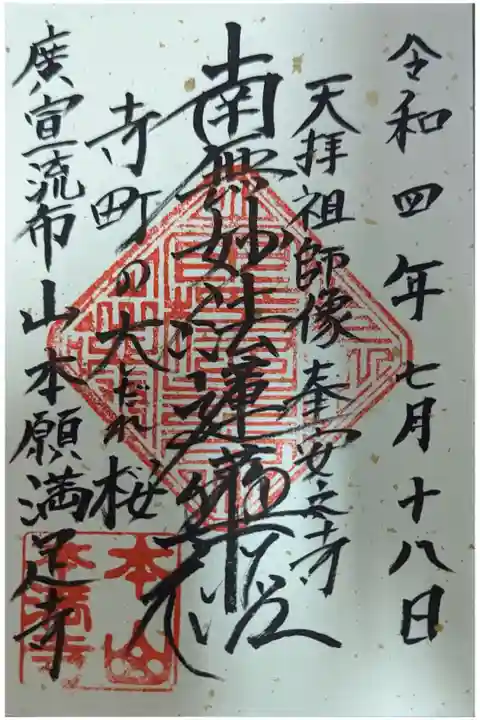 令和四年七月十八日
天拝祖師像奉安之寺
南無妙法蓮華経
寺町の大しだれ桜
廣宣流布山本願満足寺
本山
本満寺